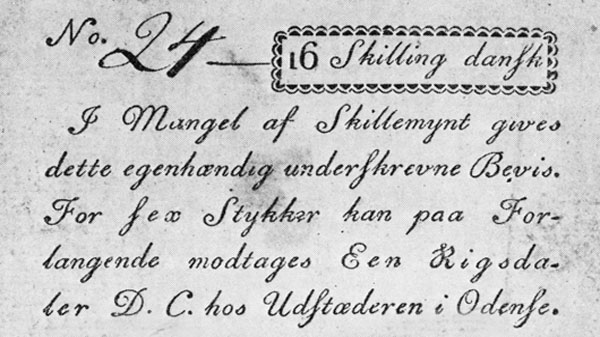 No. 24 — 16 Skilling danſk
I Mangel af Skillemynt gives
dette egenhændig underſkrevne Bevis.
For ſex Stykker kan paa For-
langende modtages Een Rigsda-
ler D. C. hos Udſtæderen i Odenſe.